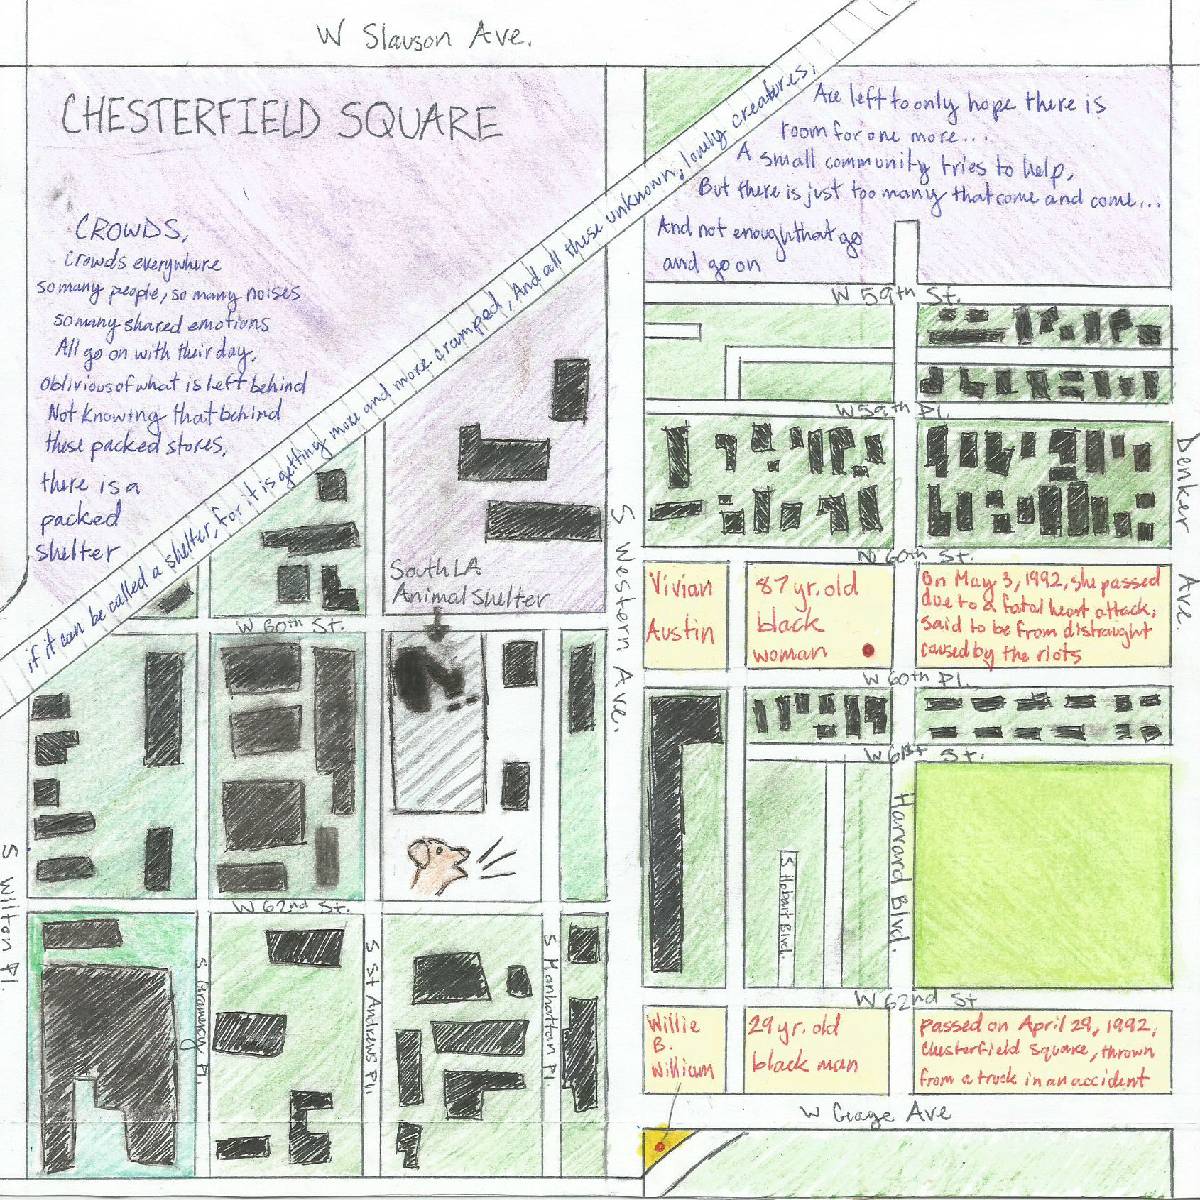 W Slauson Ave.
CHESTERFIELD SQUARE
CROWDS,
Crowds everywhere
so many people, so many noises
so many shared emotions
All go on with their day,
oblivious of what is left behind
Not knowing that behind
these packed stores,
there is a
packed
shelter
if it can be called a shelter, for it is getting more and more cramped, And all these unknown, lonely creatures,
Are left to only hope there is
room for one more...
A small community tries to help,
But there is just too many that come and come...
And not enough that go
and go on
W 59th St.
W 59th Pl.
Denker Ave.
S Western Ave.
W 60th St.
South LA
Animal Shelter
W 60th St.
Vivian
Austin
87 yr. old
black
woman
On May 3, 1992, she passed
due to a fatal heart attack,
said to be from distraught
caused by the riots
W 60th Pl.
W 61st St.
Harvard Blvd.
S Hobart Blvd.
S Wilton Pl.
W 62nd St.
S Gramercy Pl.
S St Andrews Pl.
S Manhattan Pl.
W 62nd St
Willie
B.
William
29 yr. old
black man
passed on April 29, 1992,
Chesterfield Square, thrown
from a truck in an accident
W Gage Ave